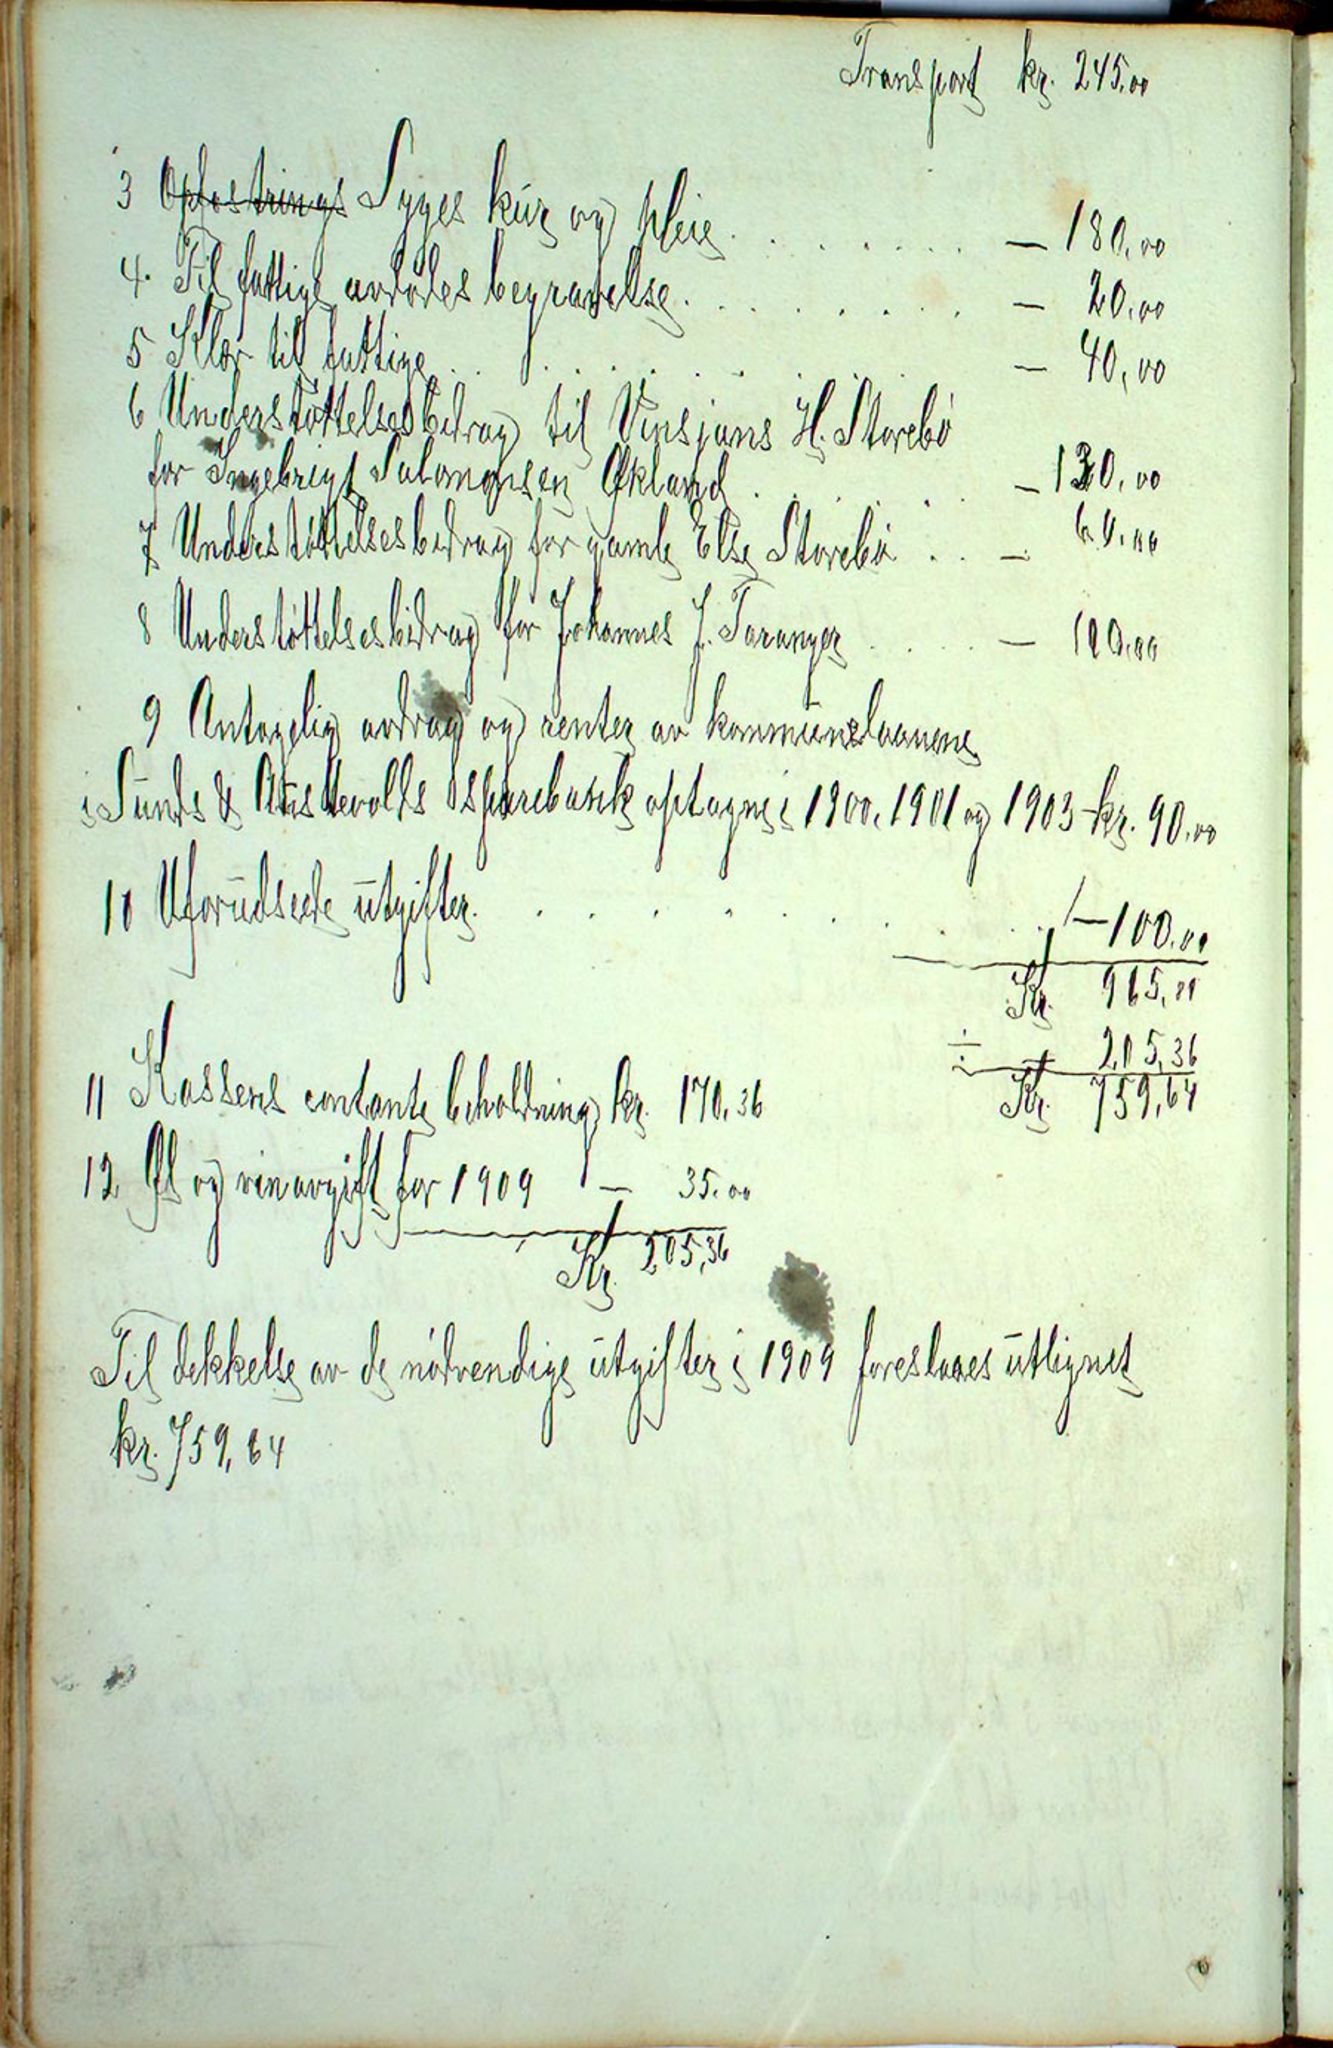 Transport kr. 245.00
3 Opfostrings Syges kur og pleie . . . . . . . . — 180.00
4. Til fattige avdødes begravelse . . . . . . . . — 20.00
5 Klær til fattige . . . . . . . . . — 40,00
6 Understøttelsesbidrag til Vinsjans H. Storebø
for Ingebrigt Salomonsen Økland . . . . . — 130.00
7 Understøttelsesbidrag for gamle Else Storebø . . — 60.00
8 Understøttelsesbidrag for Johannes J. Taranger . . . . — 100.00
9 Antagelig avdrag og renter av kommunelaanene
i Sunds & Austevolds sparebank optagne i 1900, 1901 og 1903 - kr. 90.00
10 Uforudseede utgifter . . . . . . . . — 100.00
Kr. 965,00
÷ 205,36
Kr. 759,64
11 Kassens contante beholdning kr. 170,36
12 Øl og vinavgift for 1909 — 35.00
Kr. 205,36
Til dekkelse av de nødvendige utgifter i 1909 foreslaaes utlignet
kr. 759,64